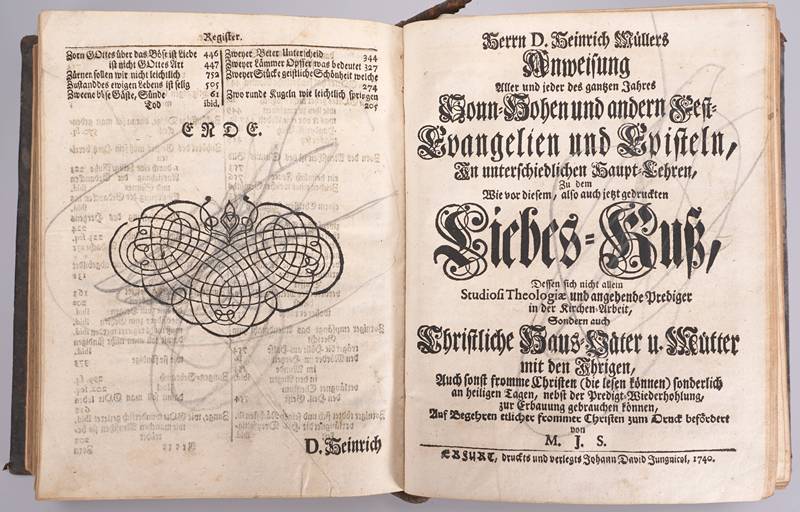 Register.
Zorn GOttes über das Böse ist Liebe 446
ist nicht GOttes Art 447
Zürnen sollen wir nicht leichtlich 752
Zustand des ewigen Lebens ist selig 505
Zweene böse Gäste, Sünde 61
Tod ibid.
Zweyer Beter Unterscheid 344
Zweyer Lämmer Opffer was bedeutet 327
Zweyer Stücke geistliche Schönheit welche
274
Zwo runde Kugeln wie leichtlich springen
205
ENDE.
D. Heinrich
Herrn D. Heinrich Müllers
Anweisung
Aller und jeder des gantzen Jahres
Sonn-Hohen und andern Fest-
Evangelien und Episteln,
In unterschiedlichen Haupt-Lehren,
Zu dem
Wie vor diesem, also auch jetzt gedruckten
Liebes-Kuß,
Dessen sich nicht allein
Studiosi Theologiæ und angehende Prediger
in der Kirchen-Arbeit,
Sondern auch
Christliche Haus-Väter u. Mütter
mit den Ihrigen,
Auch sonst fromme Christen (die lesen können) sonderlich
an heiligen Tagen, nebst der Predigt-Wiederhohlung,
zur Erbauung gebrauchen können,
Auf Begehren etlicher frommer Christen zum Druck befördert
von
M. J. S.
ERFURT, druckts und verlegts Johann David Jungnicol, 1740.